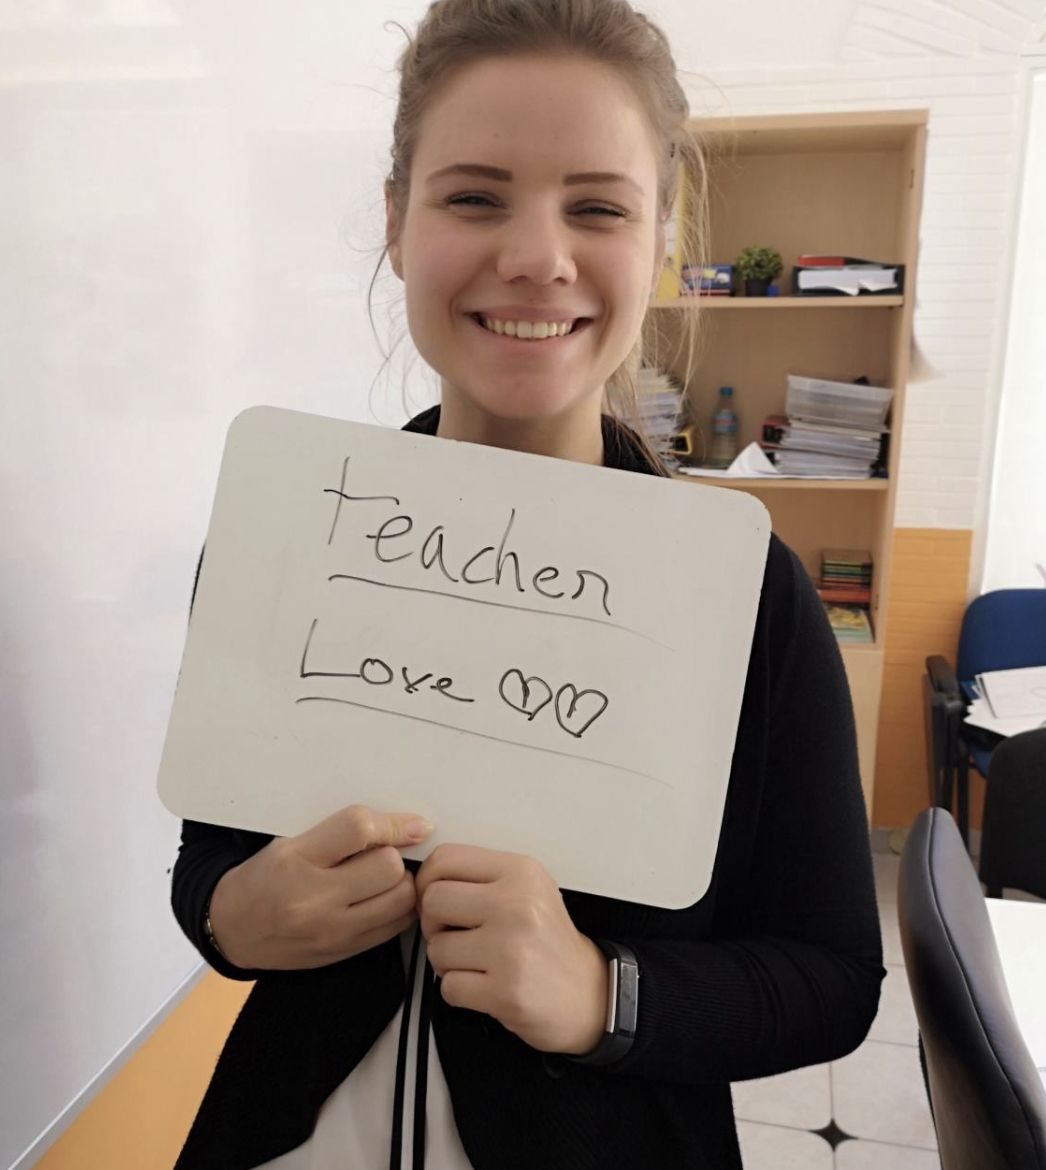 teacher
Love ♡♡